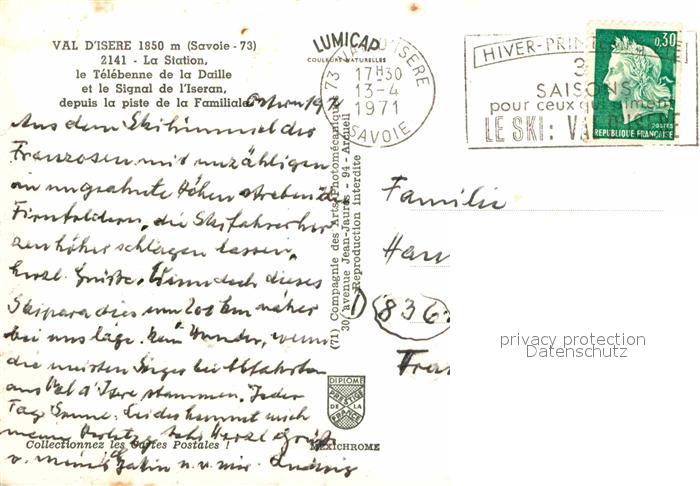 VAL D'ISERE 1850 m (Savoie - 73)
2141 - La Station,
le Télébenne de la Daille
et le Signal de l'Iseran,
depuis la piste de la Familiale
LUMICAP
COULEURS NATURELLES
73 VAL D'ISERE
17H30
13-4
1971
SAVOIE
HIVER-PRINTEMPS-ETE
3
SAISONS
pour ceux qui aiment
LE SKI: VAL D'ISERE
0,30
POSTES
REPUBLIQUE FRANÇAISE
Ostern 1971
Aus dem Skihimmel der
Franzosen mit unzähligen
in ungeahnte Höhen strebenden
Firnfeldern, die Skifahrerher
zen höher schlagen lassen,
herzl. Grüße. Wenn doch dieses
Skiparadies um 200 km näher
bei uns läge. Kein Wunder, wenn
die meisten Sieger bei Abfahrten
aus Val d'Isere stammen. Jeder
Tag Sonne. Leider kommt mich
meine
Herzl Grüße
v. meiner Gattin u. v. mir. Ludwig
(71) Compagnie des Arts Photomécaniques
30, avenue Jean-Jaurès - 94 - Arcueil
Reproduction interdite
Familie
Han
D 836
Fra
privacy protection
Datenschutz
DIPLOME
PRESTIGE
DE LA
FRANCE
MEXICHROME
Collectionnez les Cartes Postales !